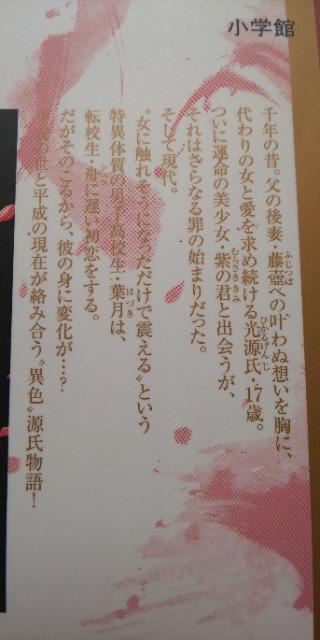 小学館
千年の昔。父の後妻・藤壺への叶わぬ想いを胸に、
代わりの女と愛を求め続ける光源氏・17歳。
ついに運命の美少女・紫の君と出会うが、
それはさらなる罪の始まりだった。
そして現代。
“女に触れそうになっただけで震える”という
特異体質の男子高校生・葉月は、
転校生・舟に遅い初恋をする。
だがそのころから、彼の身に変化が…?
の世と平成の現在が絡み合う“異色”源氏物語!